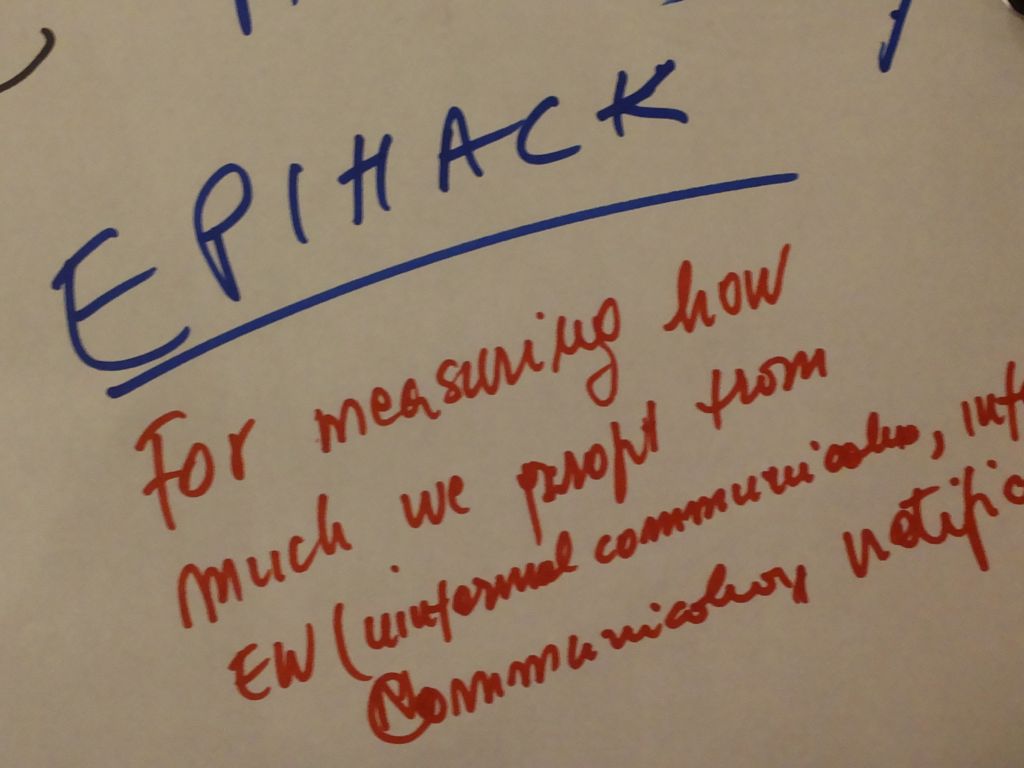 EPIHACK
For measuring how
much we profit from
EW (informal communication, inf
Communication notific